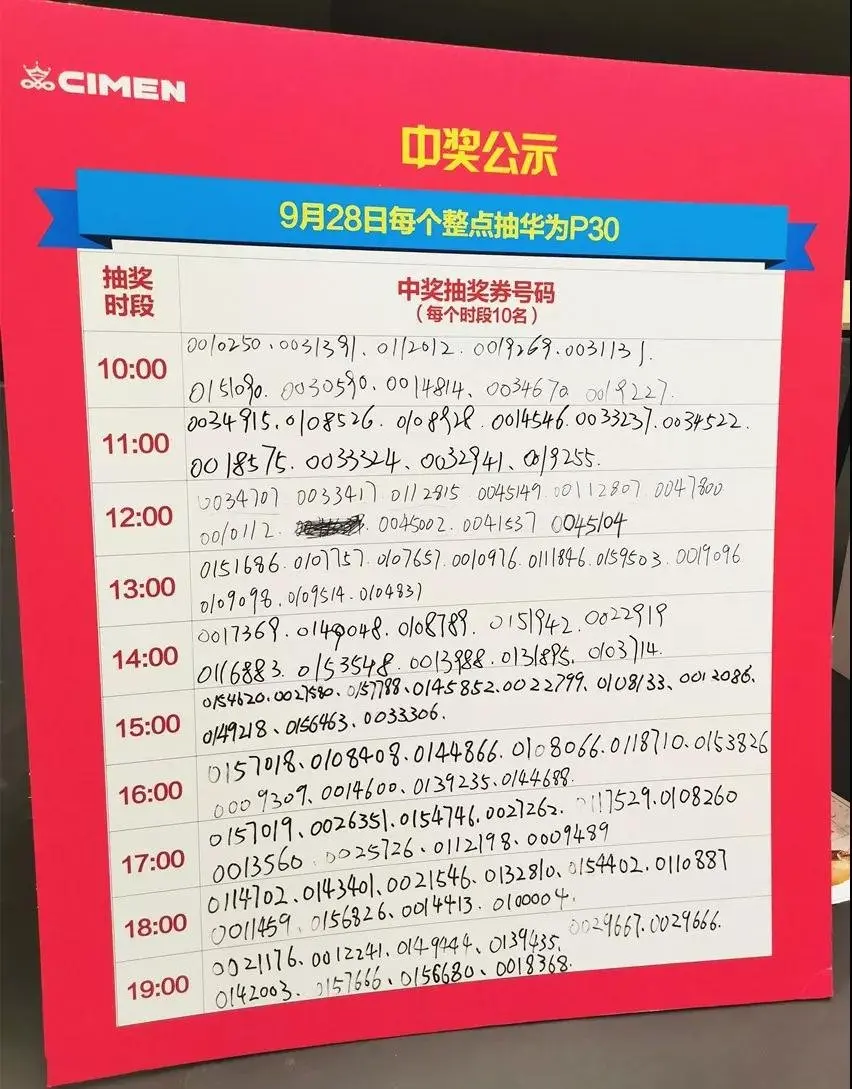 CIMEN
中奖公示
9月28日每个整点抽华为P30
抽奖
时段
中奖抽奖券号码
(每个时段10名)
10:00
0010250、0031391、0112012、0019269、0031131、
0151090、0030590、0014814、0034670 0019227.
11:00
0034915、0108526、0108928、0014546、0033237、0034522、
0018575、0033324、0032941、0019255.
12:00
0034707 0033417 0112815 0045149 00112807 0047800
0010112、 0045002、0041537 0045104
13:00
0151686、0107757、0107657、0010976、0111846、0159503、0019096
0109098、0109514、0104837
14:00
0017369、0149048、0108789、0151942、0022919
0116883、0153548、0013988、0131895、0103714.
15:00
0154620、0027580、0157788、0145852、0022799、0108133、0012086、
0149218、0156463、0033306、
16:00
0157018、0108408、0144866、0108066、0118710、0153826
0009309、0014600、0139235、0144688.
17:00
0157019、0026351、0154746、0027262、0117529、0108260
0013560、0025726、0112198、0009489
18:00
0114702、0143401、0021546、0132810、0154402、0110887
0011459、0156826、0014413、0100004.
19:00
0021176、0012241、0149444、0139435、0029667、0029666.
0142003、0157666、0156680、0018368.